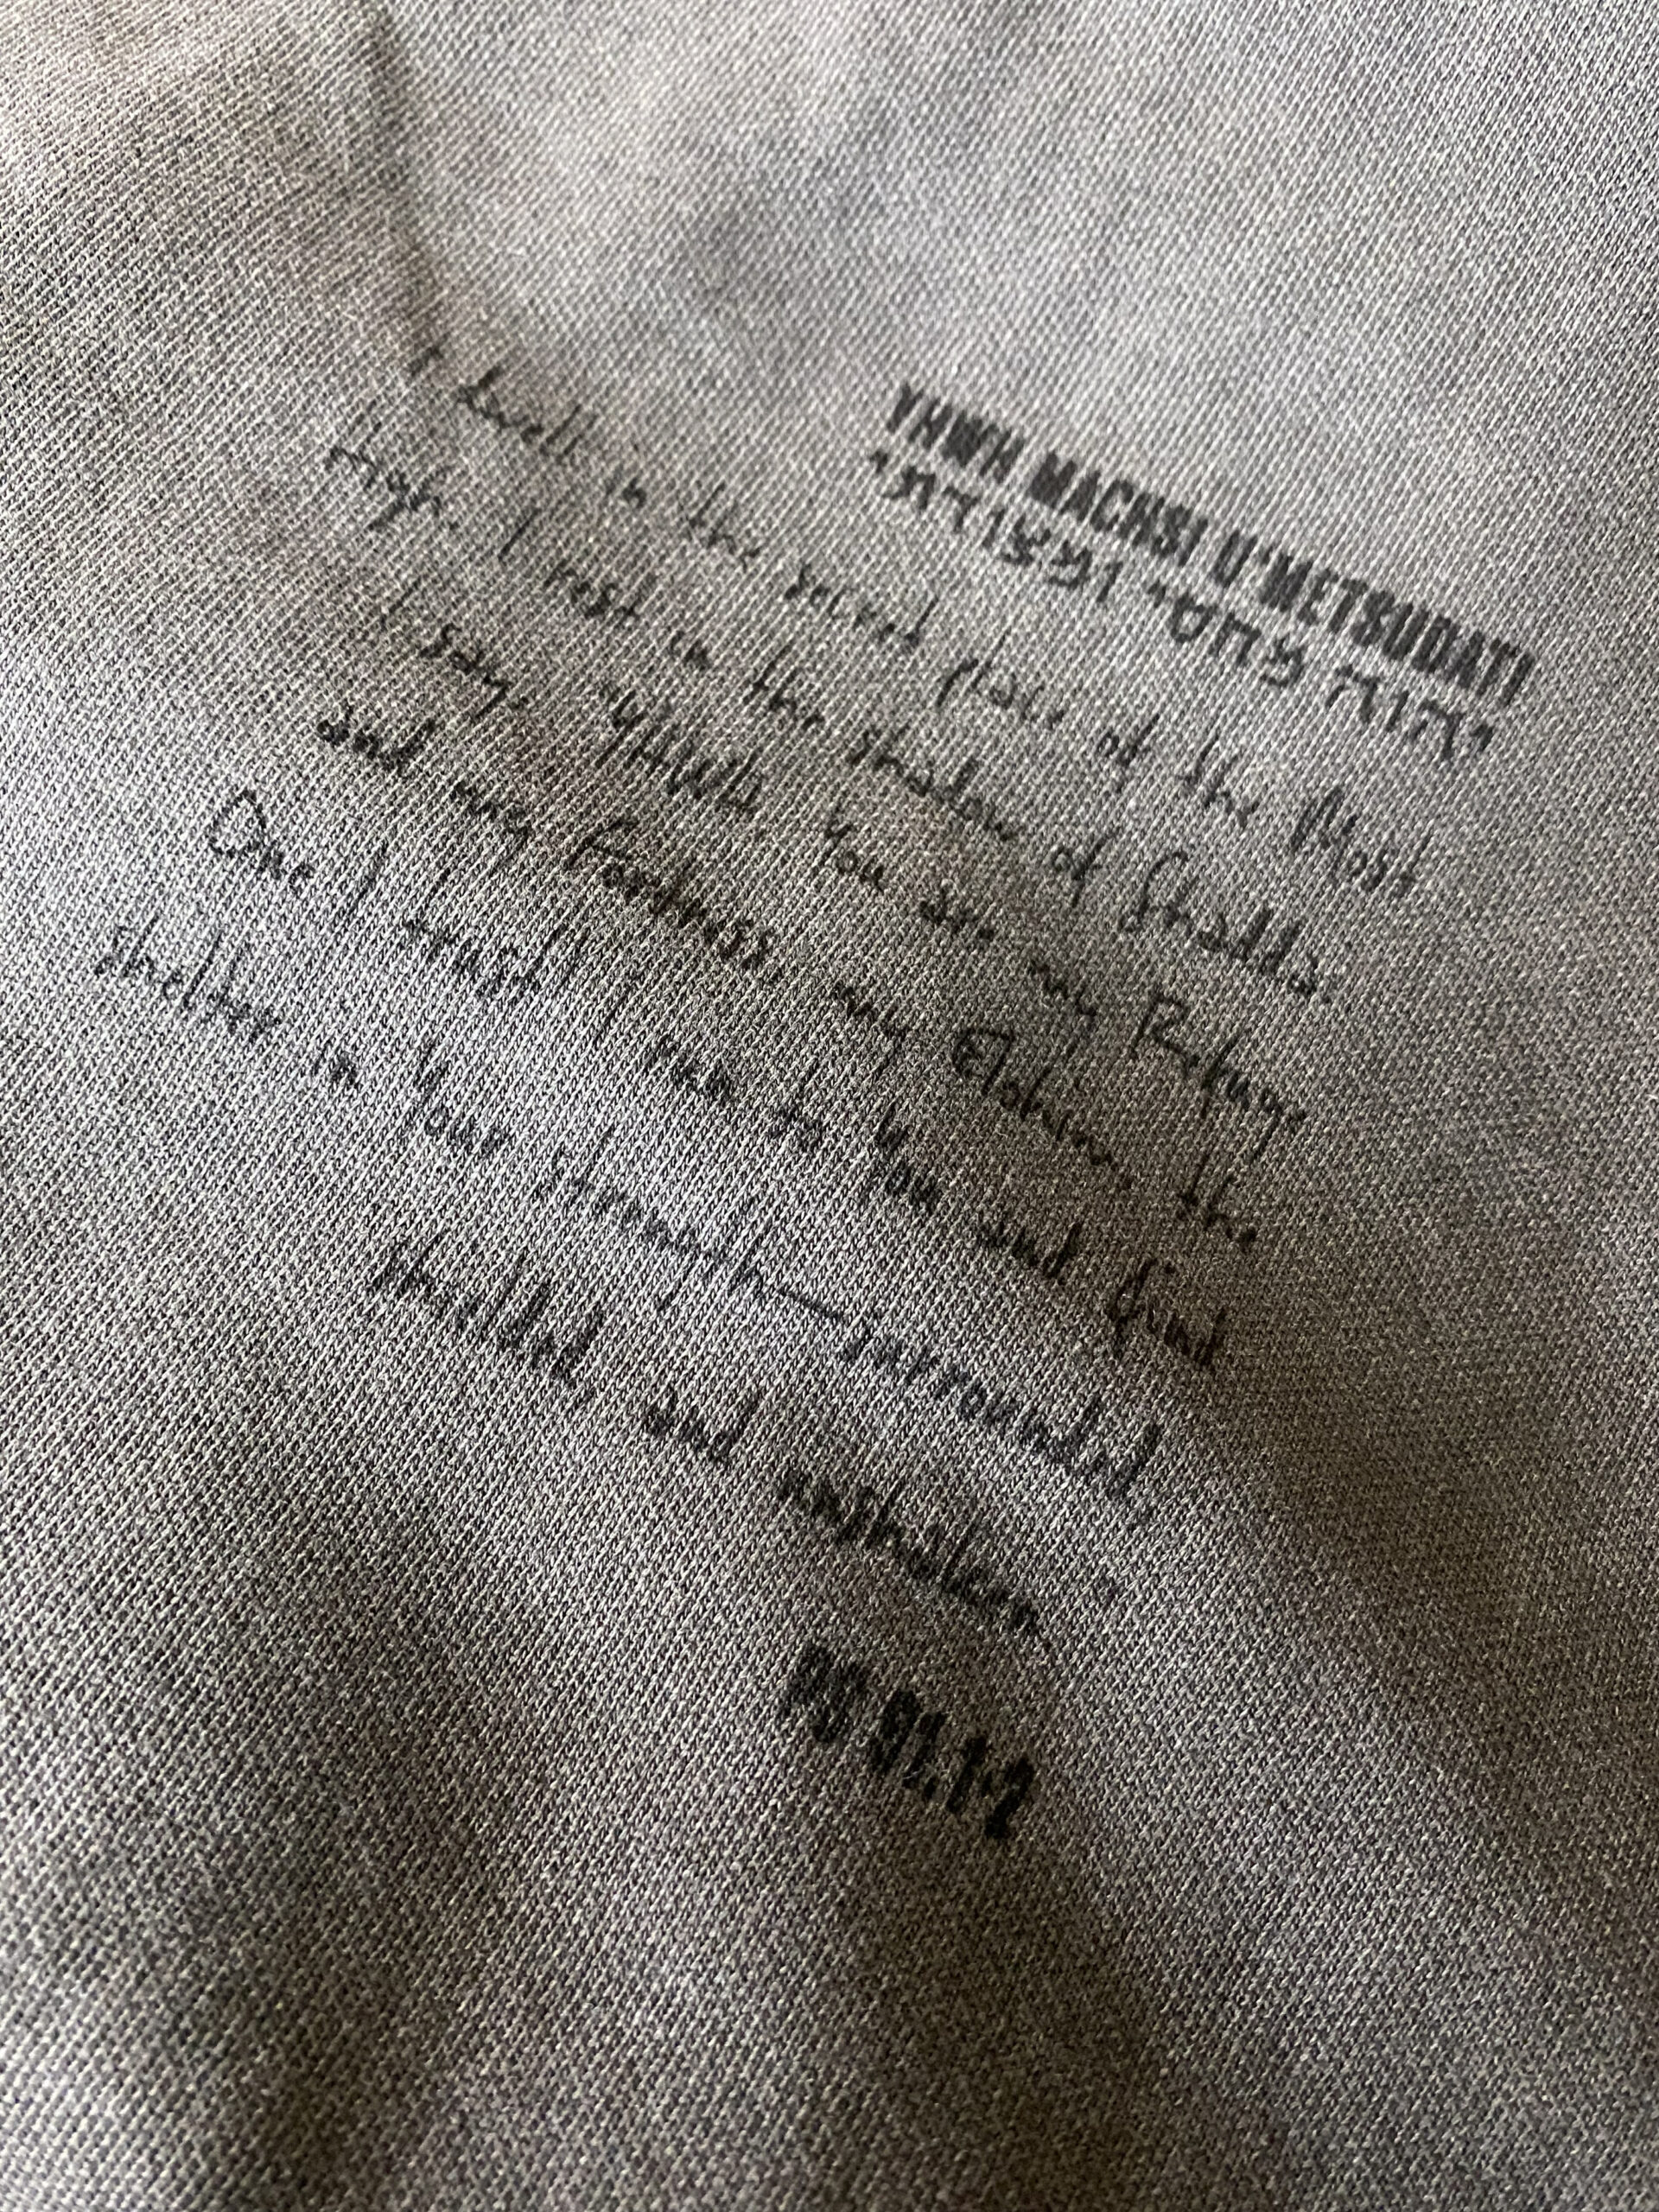 YHWH MACHSI U'METSUDATI
יהוה מחסי ומצודתי
I dwell in the secret place of the Most
High. I rest in the shadow of Shaddai.
I say, "YHWH, You are my Refuge
and my Fortress, my Elohim, the
One I trust! I run to You and find
shelter in Your strength—surrounded,
shielded, and unshaken.
PS 91.1-2